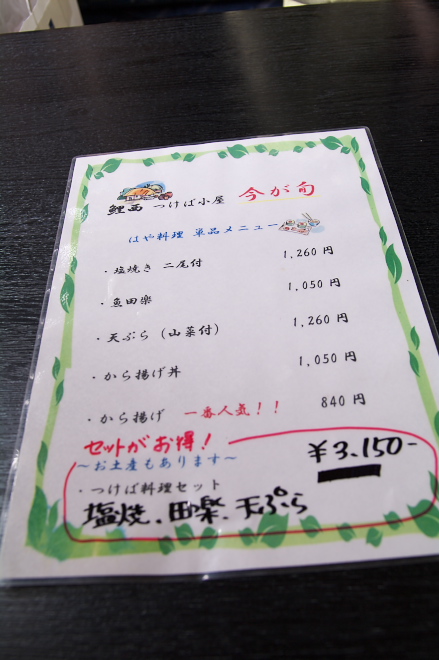 鯉西 つけば小屋 今が旬
はや料理 単品メニュー
・塩焼き 二尾付 1,260 円
・魚田楽 1,050 円
・天ぷら (山菜付) 1,260 円
・から揚げ丼 1,050 円
・から揚げ 一番人気!! 840 円
セットがお得!
～お土産もあります～ ¥3,150-
・つけば料理セット
塩焼、田楽、天ぷら